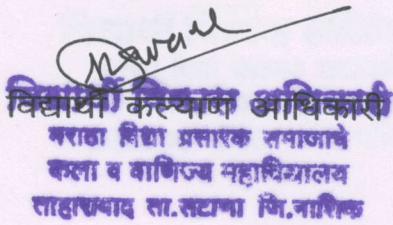 विद्यार्थी कल्याण आधिकारी
मराठा विद्या प्रसारक समाजाचे
कला व वाणिज्य महाविद्यालय
ताहाराबाद ता.सटाणा जि.नाशिक